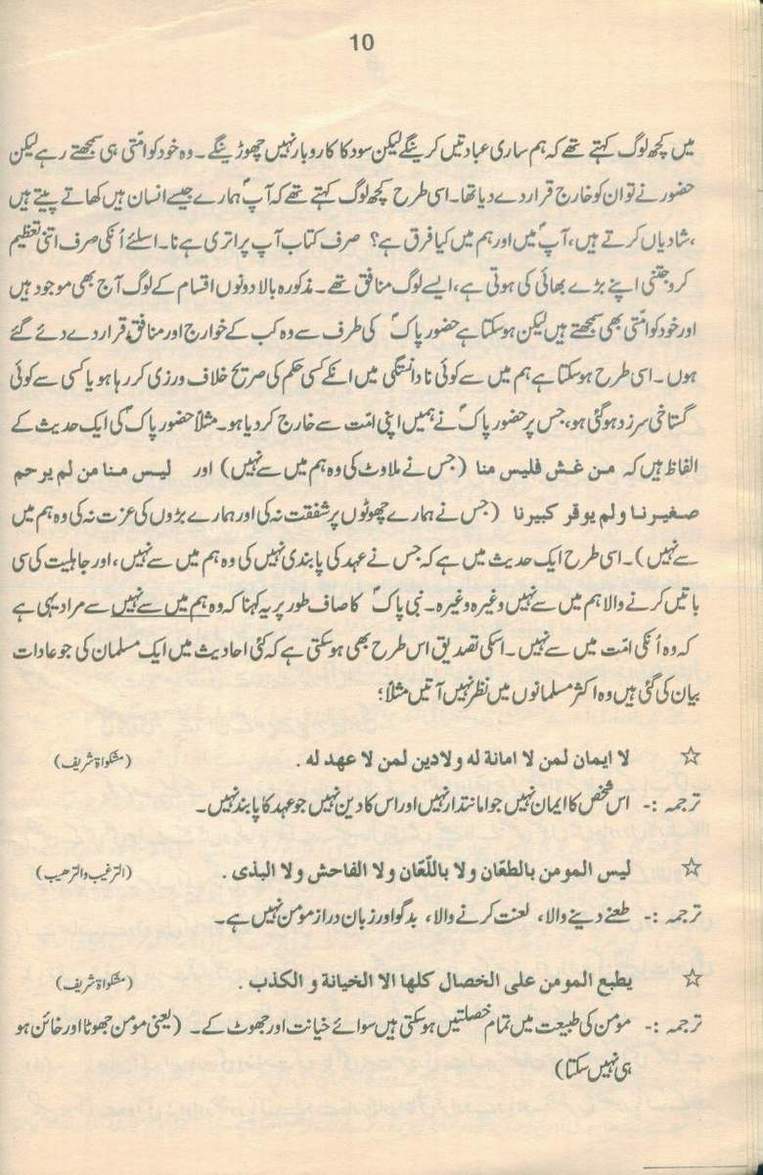 10
میں کچھ لوگ کہتے تھے کہ ہم ساری عبادتیں کرینگے لیکن سود کا کاروبار نہیں چھوڑینگے۔ وہ خود کو امّتی ہی سمجھتے رہے لیکن
حضور نے تو ان کو خارج قرار دے دیا تھا۔ اسی طرح کچھ لوگ کہتے تھے کہ آپؐ ہمارے جیسے انسان ہیں کھاتے پیتے ہیں
،شادیاں کرتے ہیں، آپؐ میں اور ہم میں کیا فرق ہے؟ صرف کتاب آپ پر اتری ہے نا۔ اسلئے اُنکی صرف اتنی تعظیم
کرو جتنی اپنے بڑے بھائی کی ہوتی ہے، ایسے لوگ منافق تھے۔ مذکورہ بالا دونوں اقسام کے لوگ آج بھی موجود ہیں
اور خود کو امّتی بھی سمجھتے ہیں لیکن ہو سکتا ہے حضور پاکؐ کی طرف سے وہ کب کے خوارج اور منافق قرار دے دئے گئے
ہوں۔ اسی طرح ہو سکتا ہے ہم میں سے کوئی نادانستگی میں انکے کسی حکم کی صریح خلاف ورزی کر رہا ہو یا کسی سے کوئی
گستاخی سرزد ہو گئی ہو، جس پر حضور پاکؐ نے ہمیں اپنی امّت سے خارج کر دیا ہو۔ مثلاً حضور پاکؐ کی ایک حدیث کے
الفاظ ہیں کہ من غش فلیس منا (جس نے ملاوٹ کی وہ ہم میں سے نہیں) اور لیس منا من لم یرحم
صغیرنا ولم یوقر کبیرنا (جس نے ہمارے چھوٹوں پر شفقت نہ کی اور ہمارے بڑوں کی عزت نہ کی وہ ہم میں
سے نہیں)۔ اسی طرح ایک حدیث میں ہے کہ جس نے عہد کی پابندی نہیں کی وہ ہم میں سے نہیں، اور جاہلیت کی سی
باتیں کرنے والا ہم میں سے نہیں وغیرہ وغیرہ۔ نبی پاکؐ کا صاف طور پر یہ کہنا کہ وہ ہم میں سے نہیں سے مراد یہی ہے
کہ وہ اُنکی امّت میں سے نہیں۔ اسکی تصدیق اس طرح بھی ہو سکتی ہے کہ کئی احادیث میں ایک مسلمان کی جو عادات
بیان کی گئی ہیں وہ اکثر مسلمانوں میں نظر نہیں آتیں مثلاً؛
☆ لا ایمان لمن لا امانة له ولا دین لمن لا عهد له . (مشکواۃ شریف)
ترجمہ :- اس شخص کا ایمان نہیں جو امانتدار نہیں اور اس کا دین نہیں جو عہد کا پابند نہیں۔
☆ لیس المومن بالطعّان ولا باللّعّان ولا الفاحش ولا البذی . (الترغیب والترھیب)
ترجمہ :- طعنے دینے والا، لعنت کرنے والا، بدگو اور زبان دراز مؤمن نہیں ہے۔
☆ یطبع المومن علی الخصال کلها الا الخیانة و الکذب . (مشکواۃ شریف)
ترجمہ :- مؤمن کی طبیعت میں تمام خصلتیں ہو سکتی ہیں سوائے خیانت اور جھوٹ کے۔ (یعنی مؤمن جھوٹا اور خائن ہو
ہی نہیں سکتا)